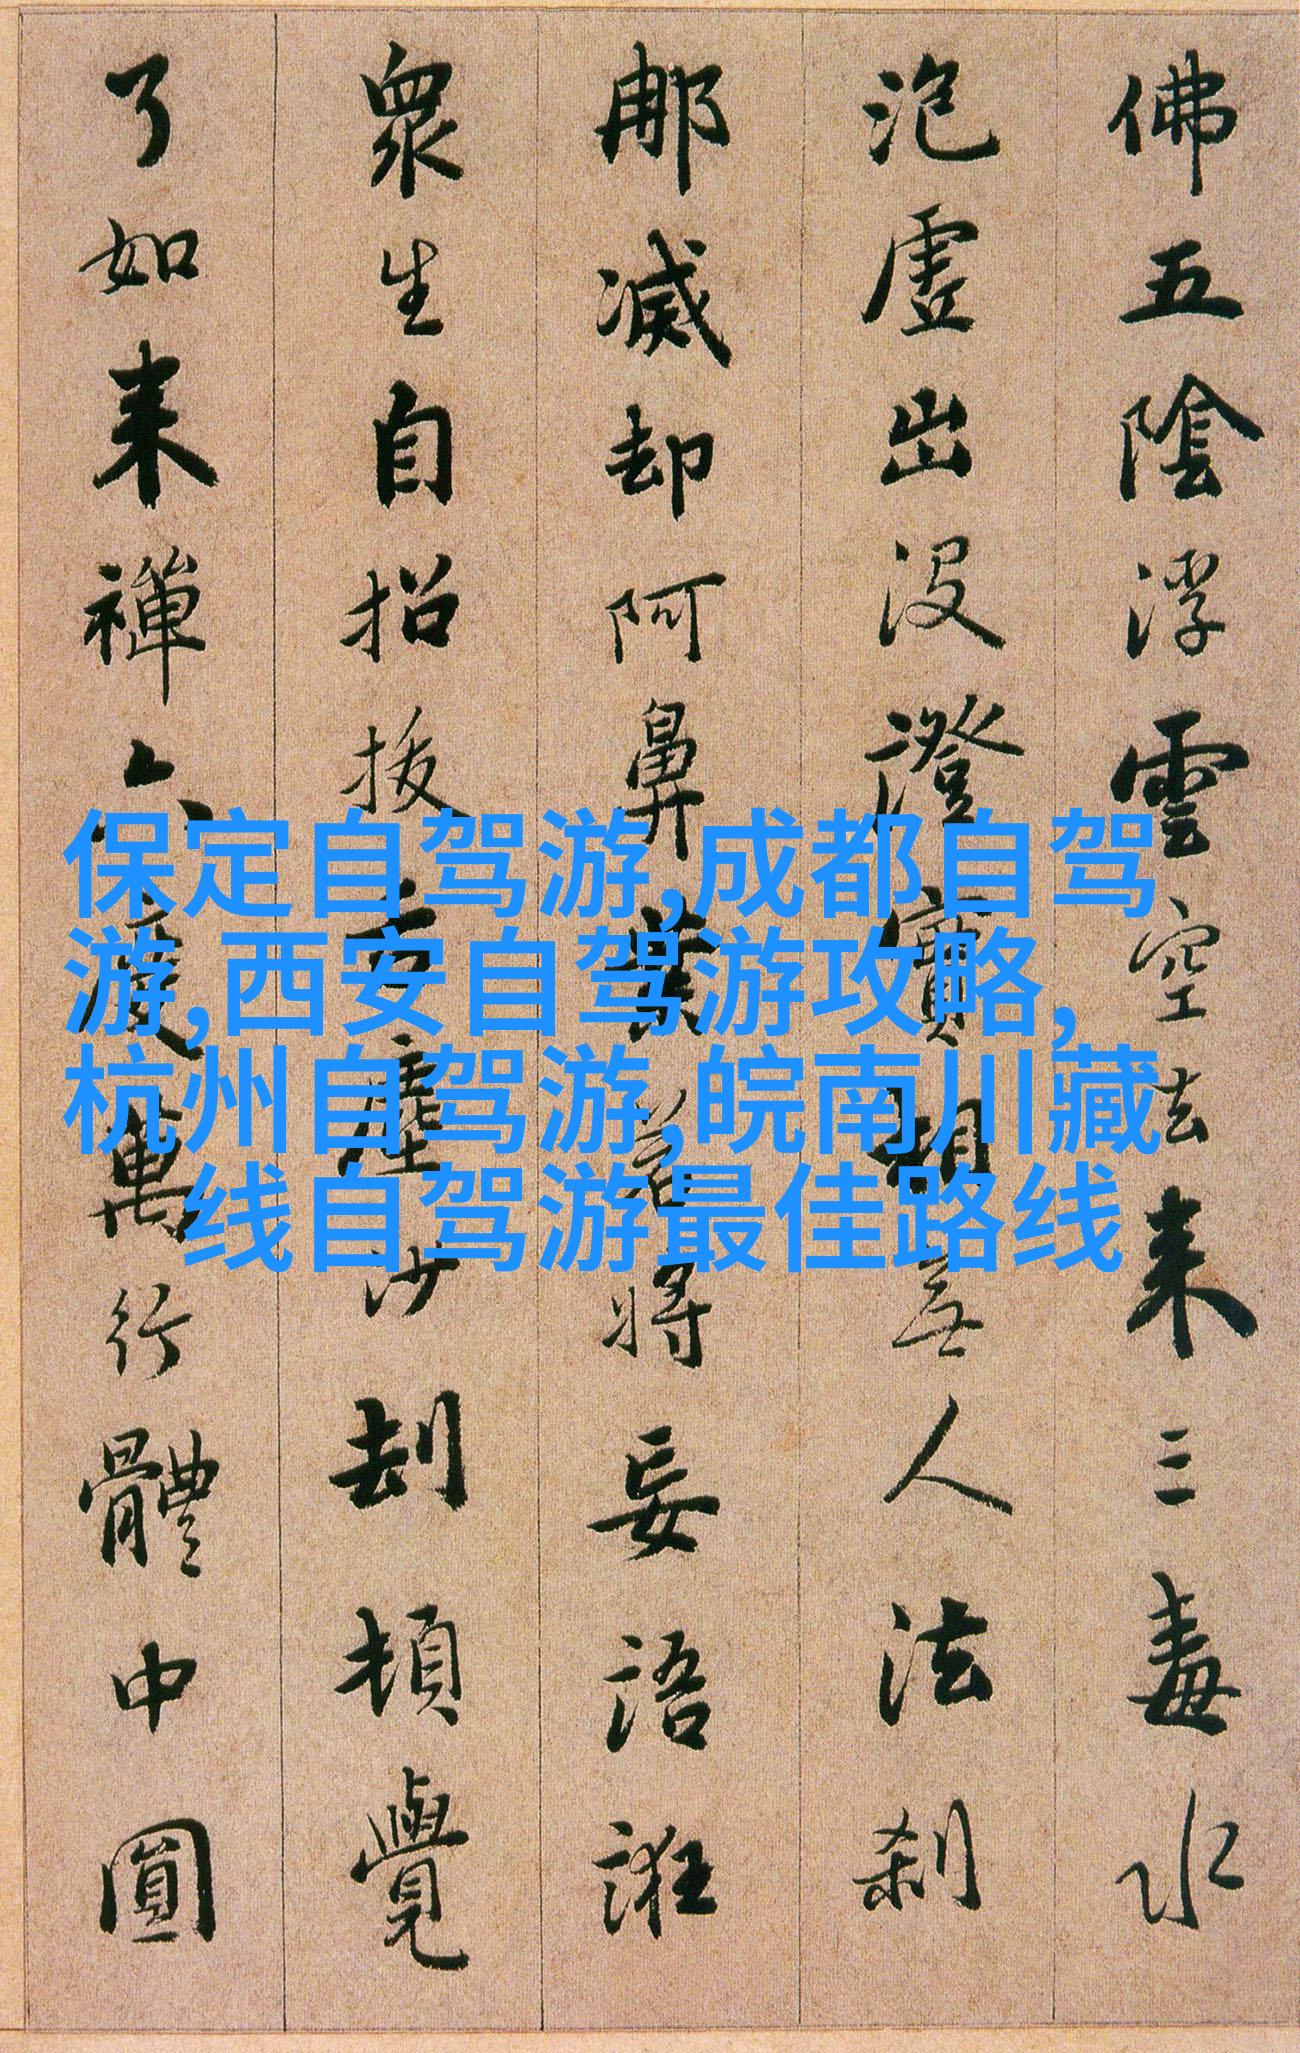 佛五陰浮雲空去来三毒水
泡虛出没證實相無人法刹
那滅却阿鼻業若將妄語誑
衆生自招拔舌塵沙刧頓覺
了如来禪六度萬行體中圓
保定自驾游,成都自驾
游,西安自驾游攻略,
杭州自驾游,皖南川藏
线自驾游最佳路线